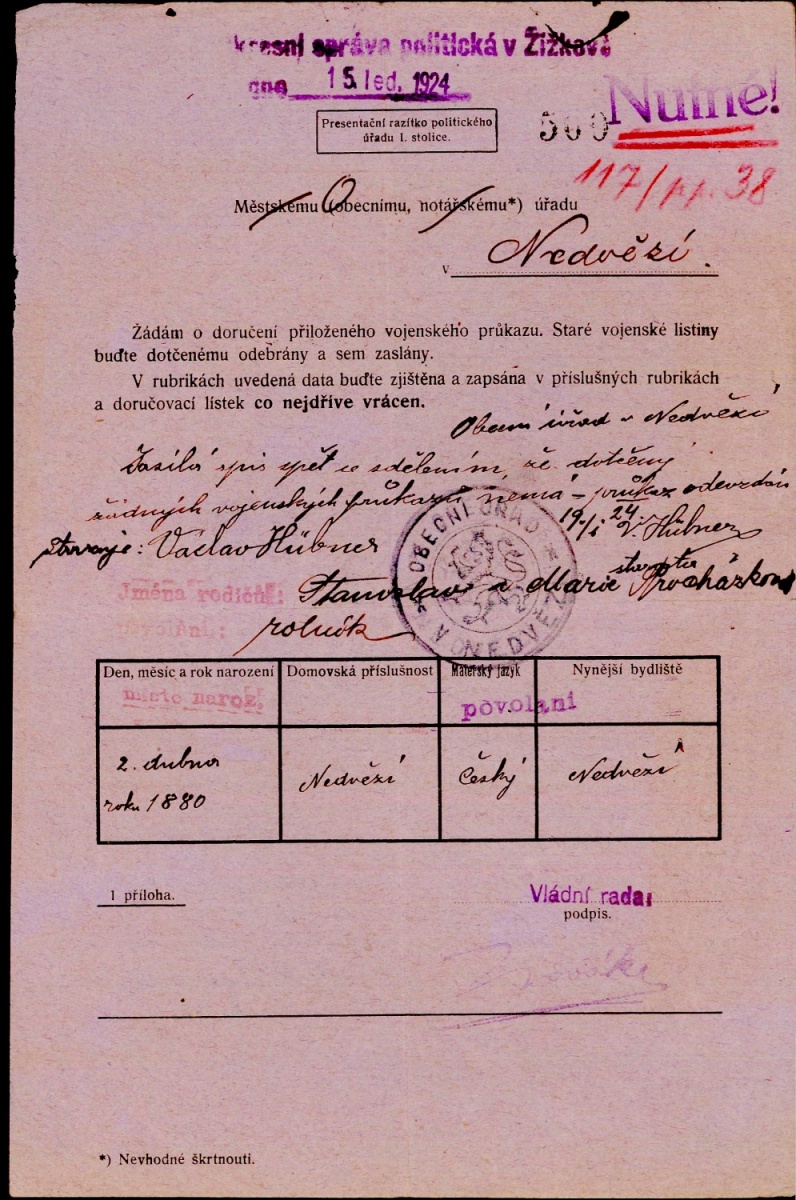 kresní správa politická v Žižkově
dne 15. led. 1924
Presentační razítko politického
úřadu I. stolice.
500
Nutné!
117/pp. 38
Městskému (Obecnímu, notářskému*) úřadu
v Nedvězí.
Žádám o doručení přiloženého vojenského průkazu. Staré vojenské listiny
buďte dotčenému odebrány a sem zaslány.
V rubrikách uvedená data buďte zjištěna a zapsána v příslušných rubrikách
a doručovací lístek co nejdříve vrácen.
Obecní úřad v Nedvězí
Zasílá spis zpět se sdělením, že dotčený
žádných vojenských průkazů nemá – průkaz odevzdán
19/I 24 V. Hübner
starosta
Václav Hübner
OBECNÍ ÚŘAD V NEDVĚZÍ
Jména rodičů:
Stanislav a Marie
rolník
Den, měsíc a rok narození
Domovská příslušnost
Mateřský jazyk
Nynější bydliště
místo naroz.
povolaní
2. dubna
roku 1880
Nedvězí
český
Nedvězí
1 příloha.
Vládní rada:
podpis.
*) Nevhodné škrtnouti.